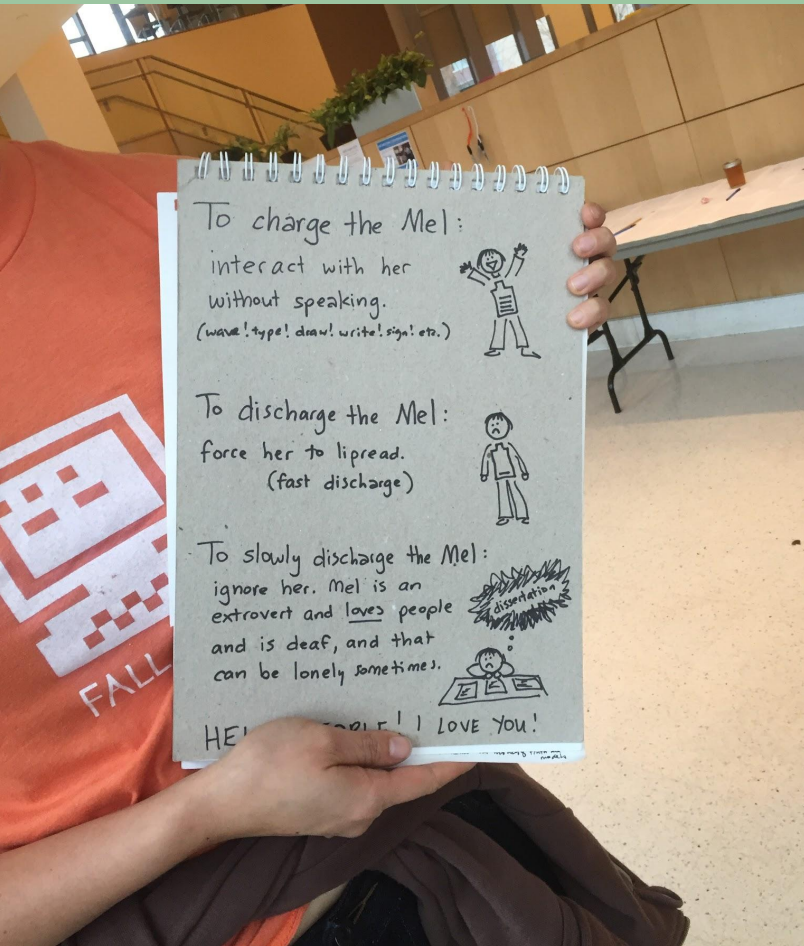 To charge the Mel:
interact with her
without speaking.
(wave! type! draw! write! sign! etc.)
To discharge the Mel:
force her to lipread.
(fast discharge)
To slowly discharge the Mel:
ignore her. Mel is an
extrovert and loves people
and is deaf, and that
can be lonely sometimes.
dissertation
I LOVE YOU!
FALL